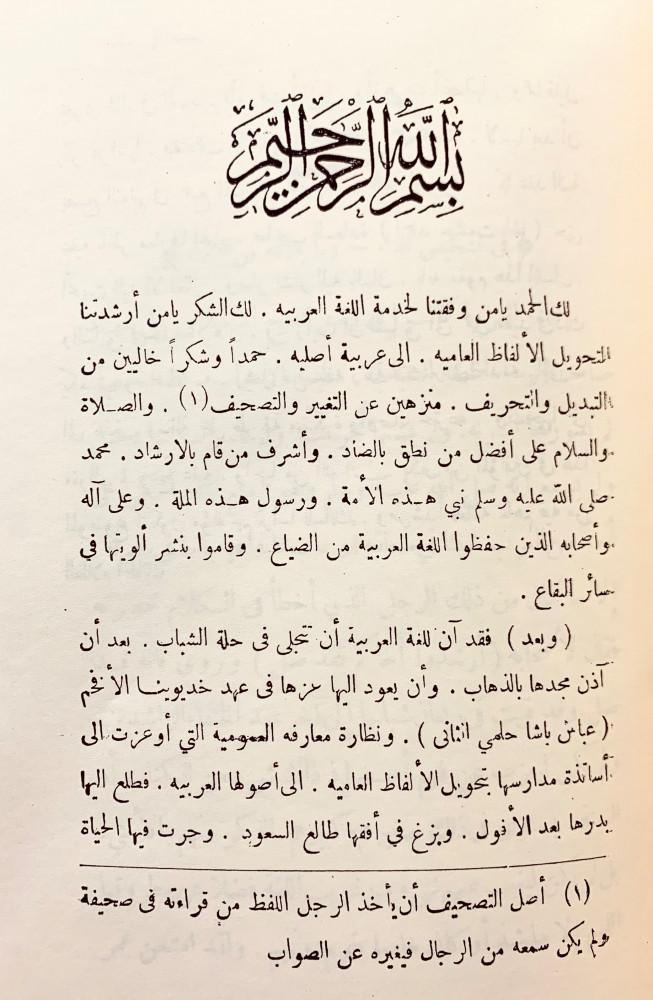 بسم الله الرحمن الرحيم
لك الحمد يامن وفقتنا لخدمة اللغة العربيه . لك الشكر يامن أرشدتنا
لتحويل الألفاظ العاميه . الى عربية أصليه . حمداً وشكراً خاليين من
التبديل والتحريف . منزهين عن التغيير والتصحيف (١) . والصـلاة
والسلام على أفضل من نطق بالضاد . وأشرف من قام بالارشاد . محمد
صلى الله عليه وسلم نبي هـذه الأمة . ورسول هـذه الملة . وعلى آله
وأصحابه الذين حفظوا اللغة العربية من الضياع . وقاموا بنشر ألويتها في
سائر البقاع .
( وبعد ) فقد آن للغة العربية أن تتجلى فى حلة الشباب . بعد أن
آذن مجدها بالذهاب . وأن يعود اليها عزها فى عهد خديوينـا الأفخم
( عباس باشا حلمي الثانى ) . ونظارة معارفه العمومية التي أوعزت الى
أساتذة مدارسها بتحويل الألفاظ العاميه . الى أصولها العربيه . فطلع اليها
بدرها بعد الأفول . وبزغ في أفقها طالع السعود . وجرت فيها الحياة
(١) أصل التصحيف أن يأخذ الرجل اللفظ من قراءته فى صحيفة
ولم يكن سمعه من الرجال فيغيره عن الصواب